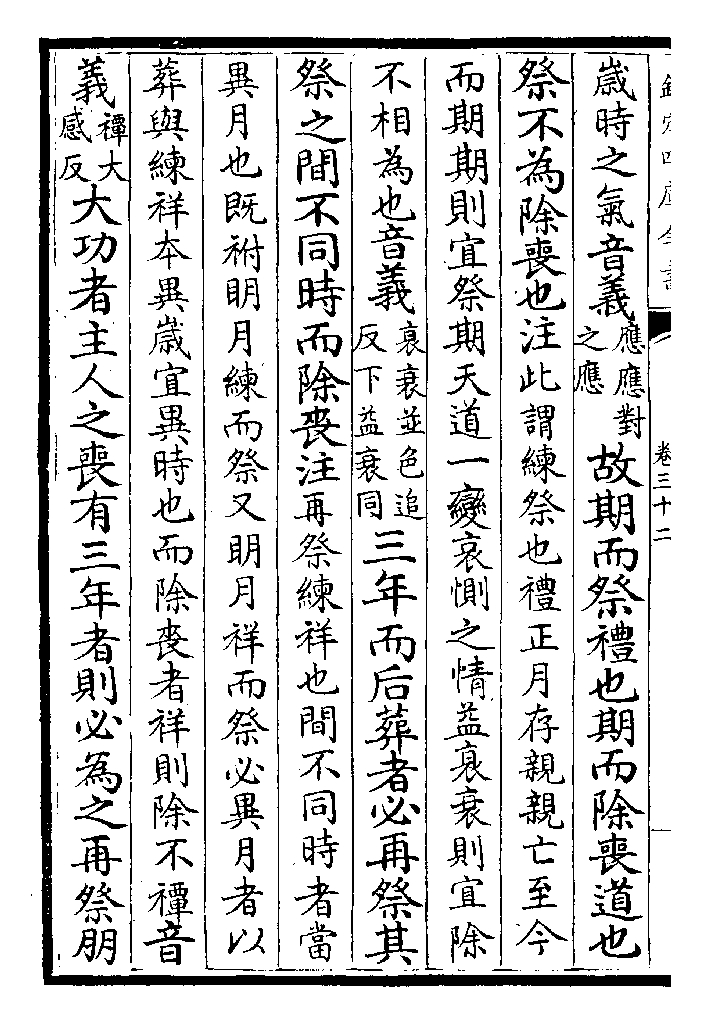 欽定四庫全書
卷三十二
歲時之氣音義應應對之應故期而祭禮也期而除喪道也
祭不為除喪也注此謂練祭也禮正月存親親亡至今
而期期則宜祭期天道一變哀惻之情益衰衰則宜除
不相為也音義衰衰並色追反下益衰同三年而后葬者必再祭其
祭之間不同時而除喪注再祭練祥也間不同時者當
異月也既祔明月練而祭又明月祥而祭必異月者以
葬與練祥本異歲宜異時也而除喪者祥則除不禫音
義禫大感反大功者主人之喪有三年者則必為之再祭朋